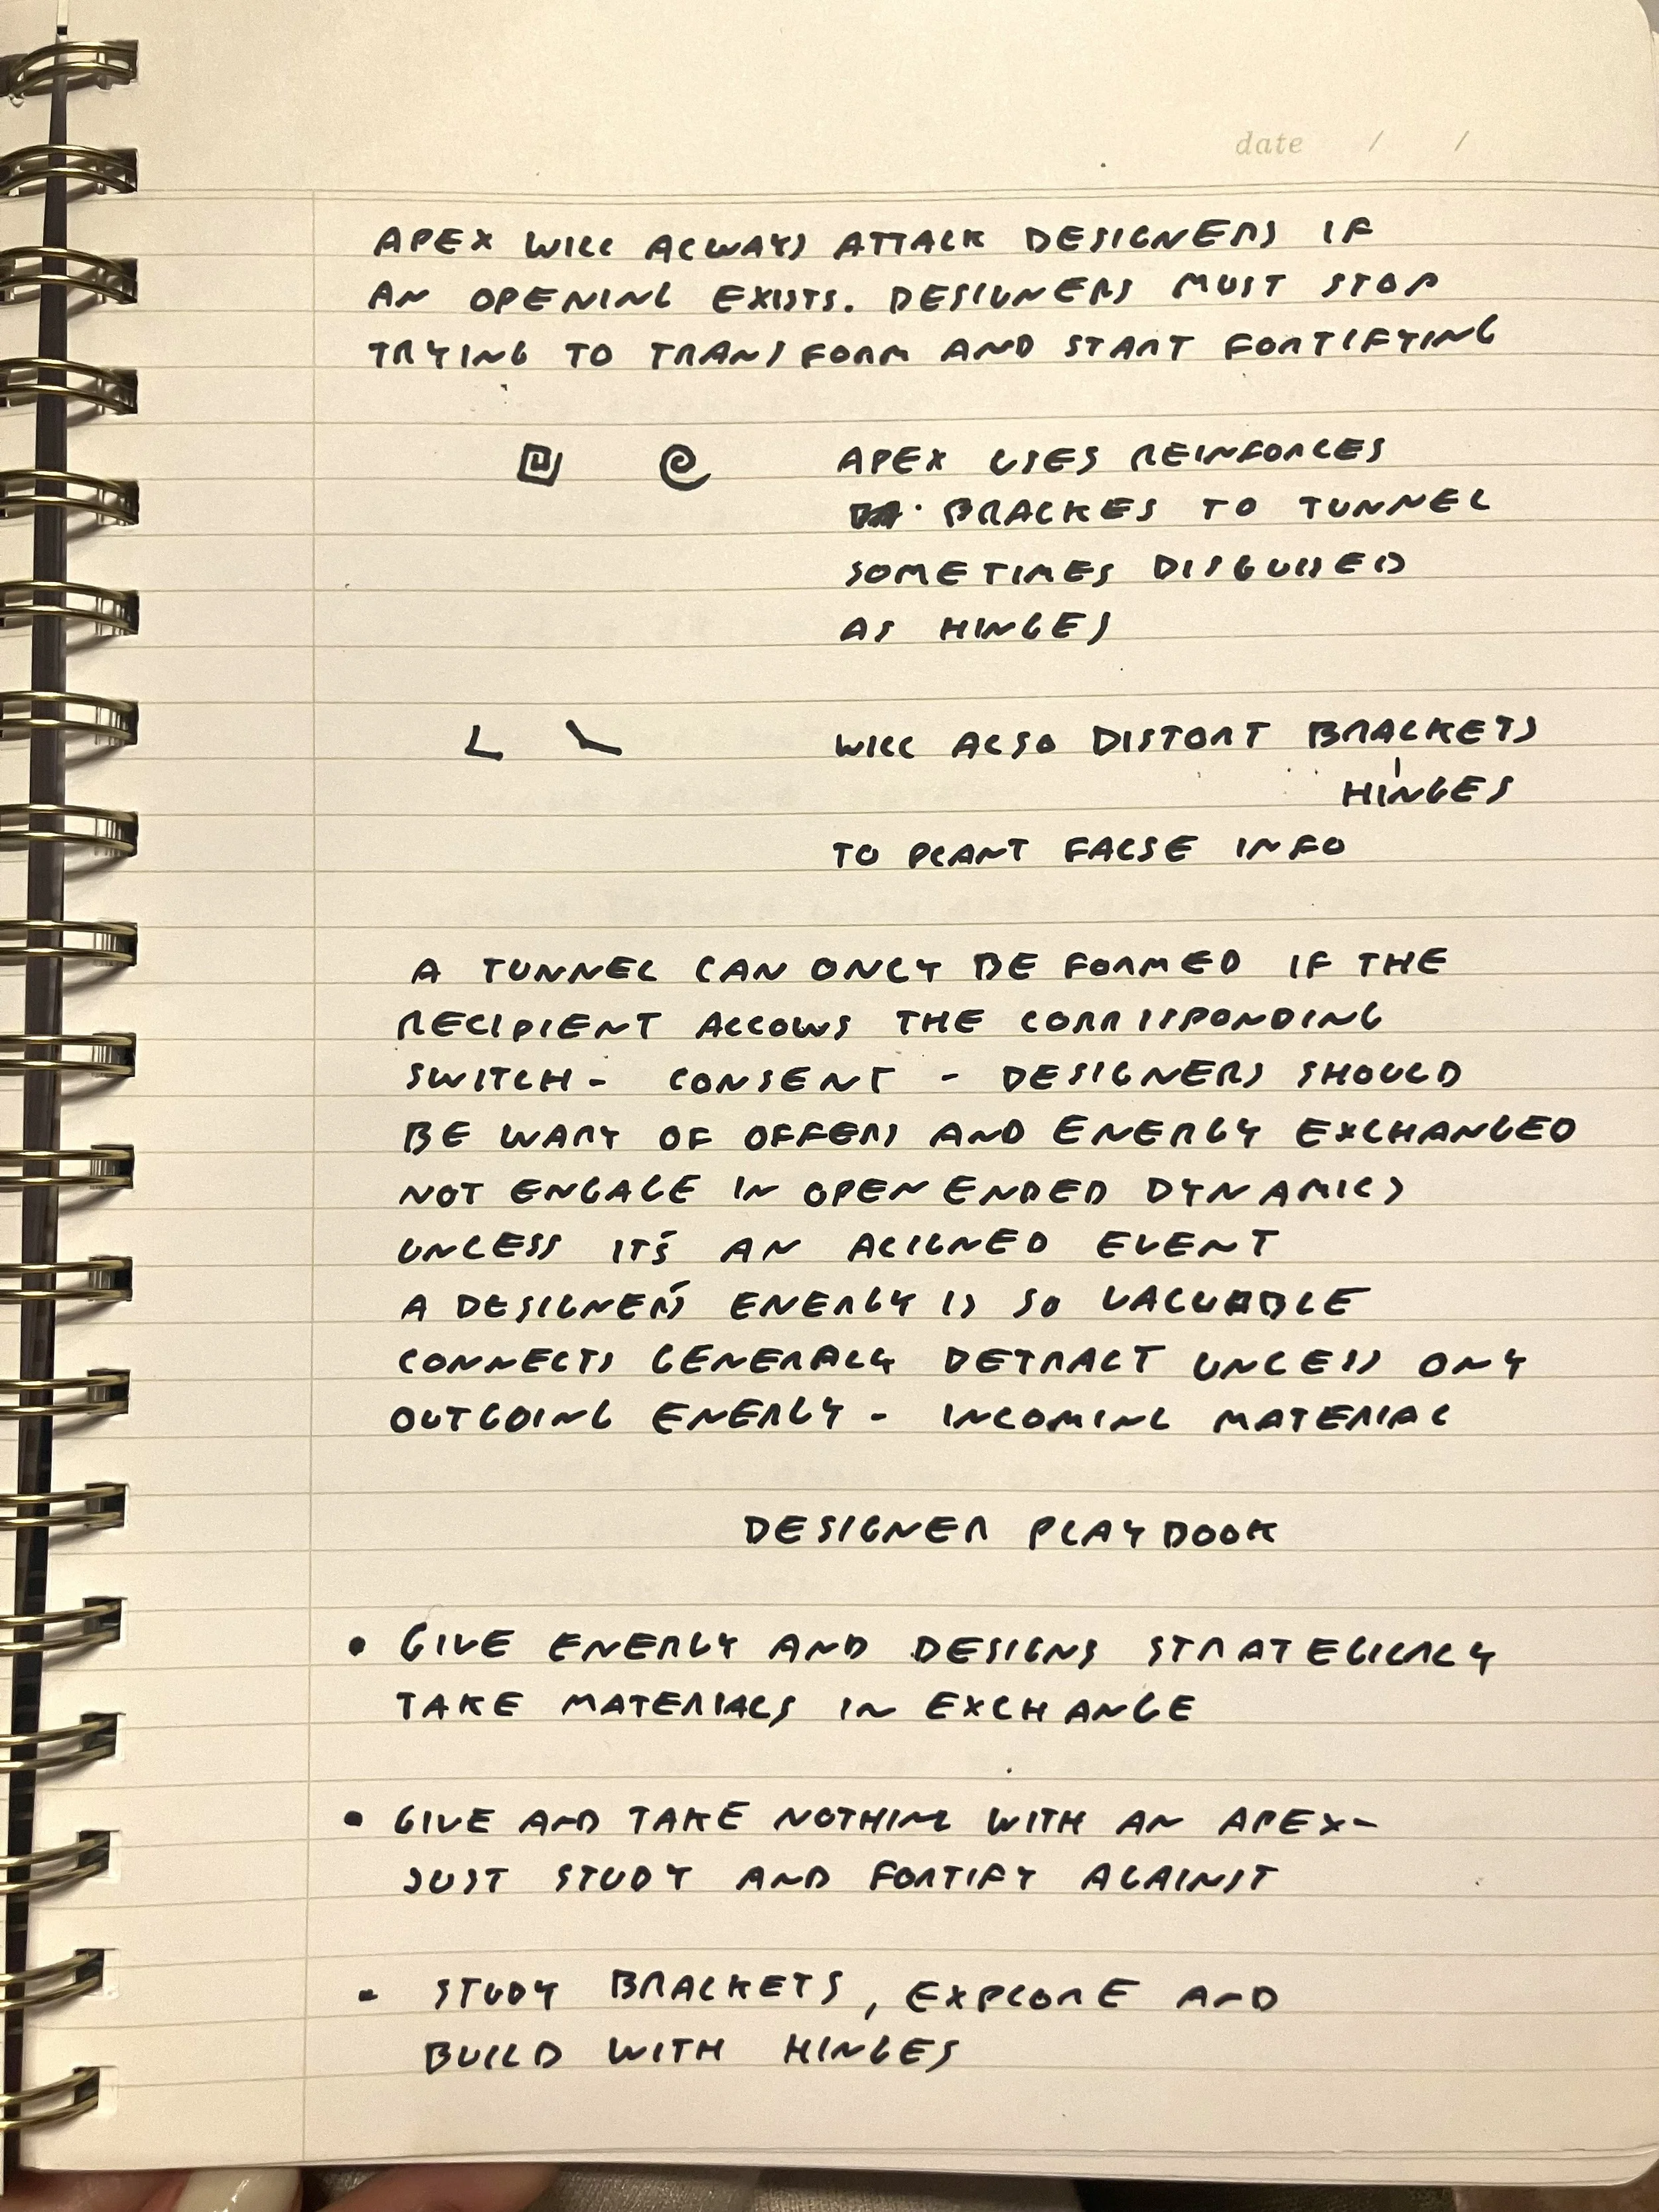 date / /
APEX WILL ALWAYS ATTACK DESIGNERS IF
AN OPENING EXISTS. DESIGNERS MUST STOP
TRYING TO TRANSFORM AND START FORTIFYING
APEX USES REINFORCES
BRACKES TO TUNNEL
SOMETIMES DISGUISED
AS HINGES
WILL ALSO DISTORT BRACKETS
HINGES
TO PLANT FALSE INFO
A TUNNEL CAN ONLY BE FORMED IF THE
RECIPIENT ALLOWS THE CORRISPONDING
SWITCH - CONSENT - DESIGNERS SHOULD
BE WARY OF OFFERS AND ENERGY EXCHANGED
NOT ENGAGE IN OPEN ENDED DYNAMICS
UNLESS IT'S AN ALIGNED EVENT
A DESIGNER'S ENERGY IS SO VALUABLE
CONNECTS GENERALLY DETRACT UNLESS ONLY
OUTGOING ENERGY - INCOMING MATERIAL
DESIGNER PLAYBOOK
• GIVE ENERGY AND DESIGNS STRATEGICALLY
TAKE MATERIALS IN EXCHANGE
• GIVE AND TAKE NOTHING WITH AN APEX-
JUST STUDY AND FORTIFY AGAINST
- STUDY BRACKETS, EXPLORE AND
BUILD WITH HINGES